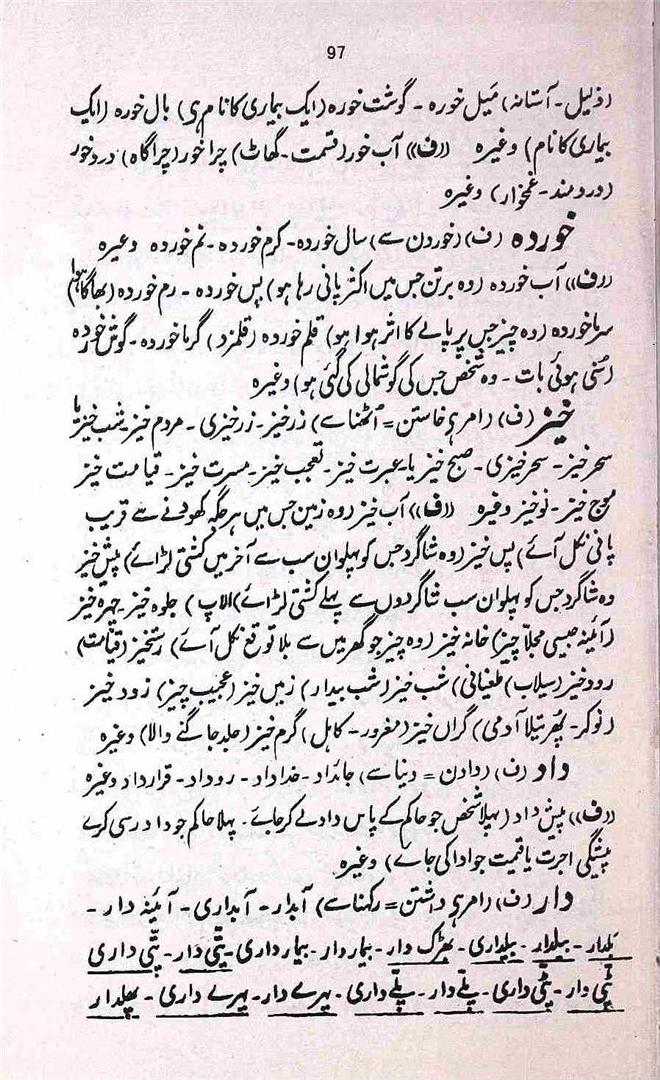 97
(ذلیل۔ آستانہ) مَیل خورہ ۔ گوشت خورہ (ایک بیماری کا نام ہی) بال خورہ (ایک
بیماری کا نام) وغیرہ ((ف)) آب خور (قسمت۔ گھاٹ) چرا خور (چراگاہ) درد خور
(دردمند۔ غمخوار) وغیرہ
خوردہ (ف) (خوردن سے) سال خوردہ۔ کرم خوردہ ۔ نم خوردہ وغیرہ
((ف)) آب خوردہ (وہ برتن جس میں اکثر پانی رہا ہو) پس خوردہ ۔ رم خوردہ (بھاگا ہوا)
سرما خوردہ (وہ چیز جس پر پالے کا اثر ہوا ہو) قلم خوردہ (قلمزد) گرما خوردہ۔ گوش خوردہ
(سُنی ہوئی بات ۔ وہ شخص جس کی گوشمالی کی گئی ہو) وغیرہ
خیز (ف) (امر ہی خاستن = اُٹھنا سے) زرخیز۔ زرخیزی ۔ مردم خیز شب خیز یا
سحر خیز۔ سحر خیزی ۔ صبح خیز یا۔ عبرت خیز۔ تعجب خیز۔ مسرت خیز۔ قیامت خیز
موج خیز۔ نوخیز وغیرہ ((ف)) آب خیز (وہ زمین جس میں ہر جگہ کھودنے سے قریب
پانی نکل آئے) پس خیز (وہ شاگرد جس کو پہلوان سب سے آخر میں کشتی لڑائے) پیش خیز
وہ شاگرد جس کو پہلوان سب شاگردوں سے پہلے کشتی لڑائے) (الاپ) جلوہ خیز۔ چہرہ خیز
(آئینہ جیسی مجلّا چیز) خانہ خیز (وہ چیز جو گھر میں سے بلا توقع نکل آئے) رستخیز (قیامت)
رود خیز (سیلاب) طغیانی) شب خیز (شب بیدار) زمیں خیز (عجیب چیز) زود خیز
(نوکر۔ پھرتیلا آدمی) گراں خیز (مغرور۔ کاہل) گرم خیز (جلد جاگنے والا) وغیرہ
داد (ف) (دادن = دینا سے) جائداد۔ خداداد ۔ روداد۔ قرارداد وغیرہ
((ف)) پیش داد (پہلا شخص جو حاکم کے پاس داد لے کر جائے ۔ پہلا حاکم جو داد رسی کرے
پیشگی اجرت یا قیمت جو ادا کی جائے) وغیرہ
دار (ف) (امر ہی داشتن = رکھنا سے) آبدار ۔ آبداری ۔ آئینہ دار ۔
بیلدار ۔ بیلداری ۔ بھڑک دار ۔ بیمار دار ۔ بیمار داری ۔ پتّی دار ۔ پتّی داری
پٹّی دار ۔ پٹّی داری ۔ پلّے دار ۔ پلّے داری ۔ پہرے دار ۔ پہرے داری ۔ پھلدار